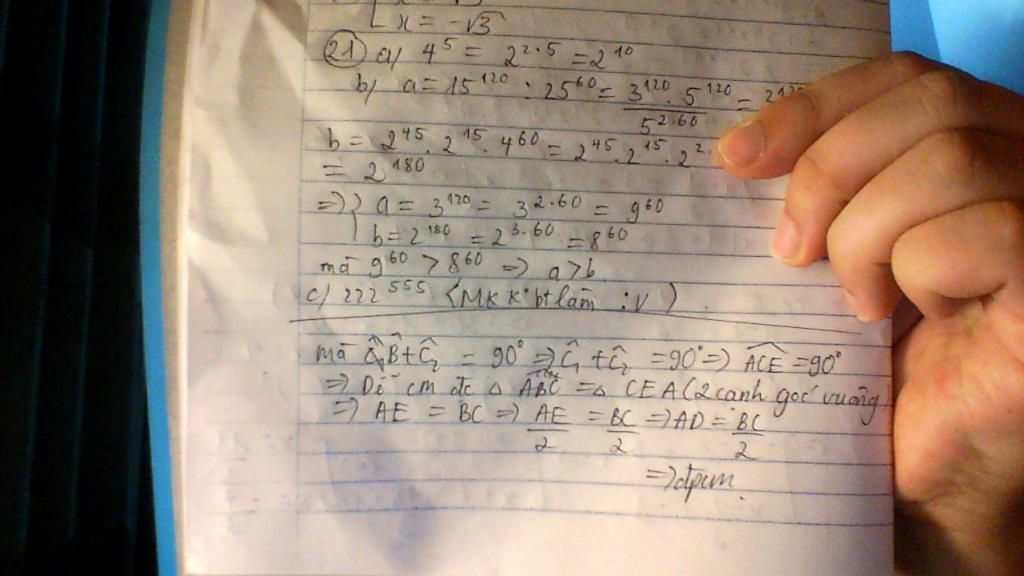 x = -√3
21 a) 4^5 = 2^{2.5} = 2^{10}
b) a = 15^{120} : 25^{60} = \frac{3^{120}.5^{120}}{5^{2.60}} =
b = 2^{45}.2^{15}.4^{60} = 2^{45}.2^{15}.2^{2.
= 2^{180}
=> { a = 3^{120} = 3^{2.60} = 9^{60}
b = 2^{180} = 2^{3.60} = 8^{60}
mà 9^{60} > 8^{60} => a > b
c) 222^{555} (Mk k bt làm :v )
mà B̂ + Ĉ₂ = 90° => Ĉ₁ + Ĉ₂ = 90° => ACE = 90°
=> Dễ cm đc △ ABC = △ CEA (2 cạnh góc vuông)
=> AE = BC => \frac{AE}{2} = \frac{BC}{2} => AD = \frac{BC}{2}
=> đpcm.